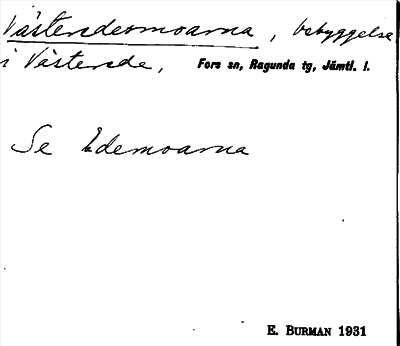 Västeredesmoarna, bebyggelse
i Västerede, Fors sn, Ragunda tg, Jämtl. l.
Se Edemoarna
E. BURMAN 1931